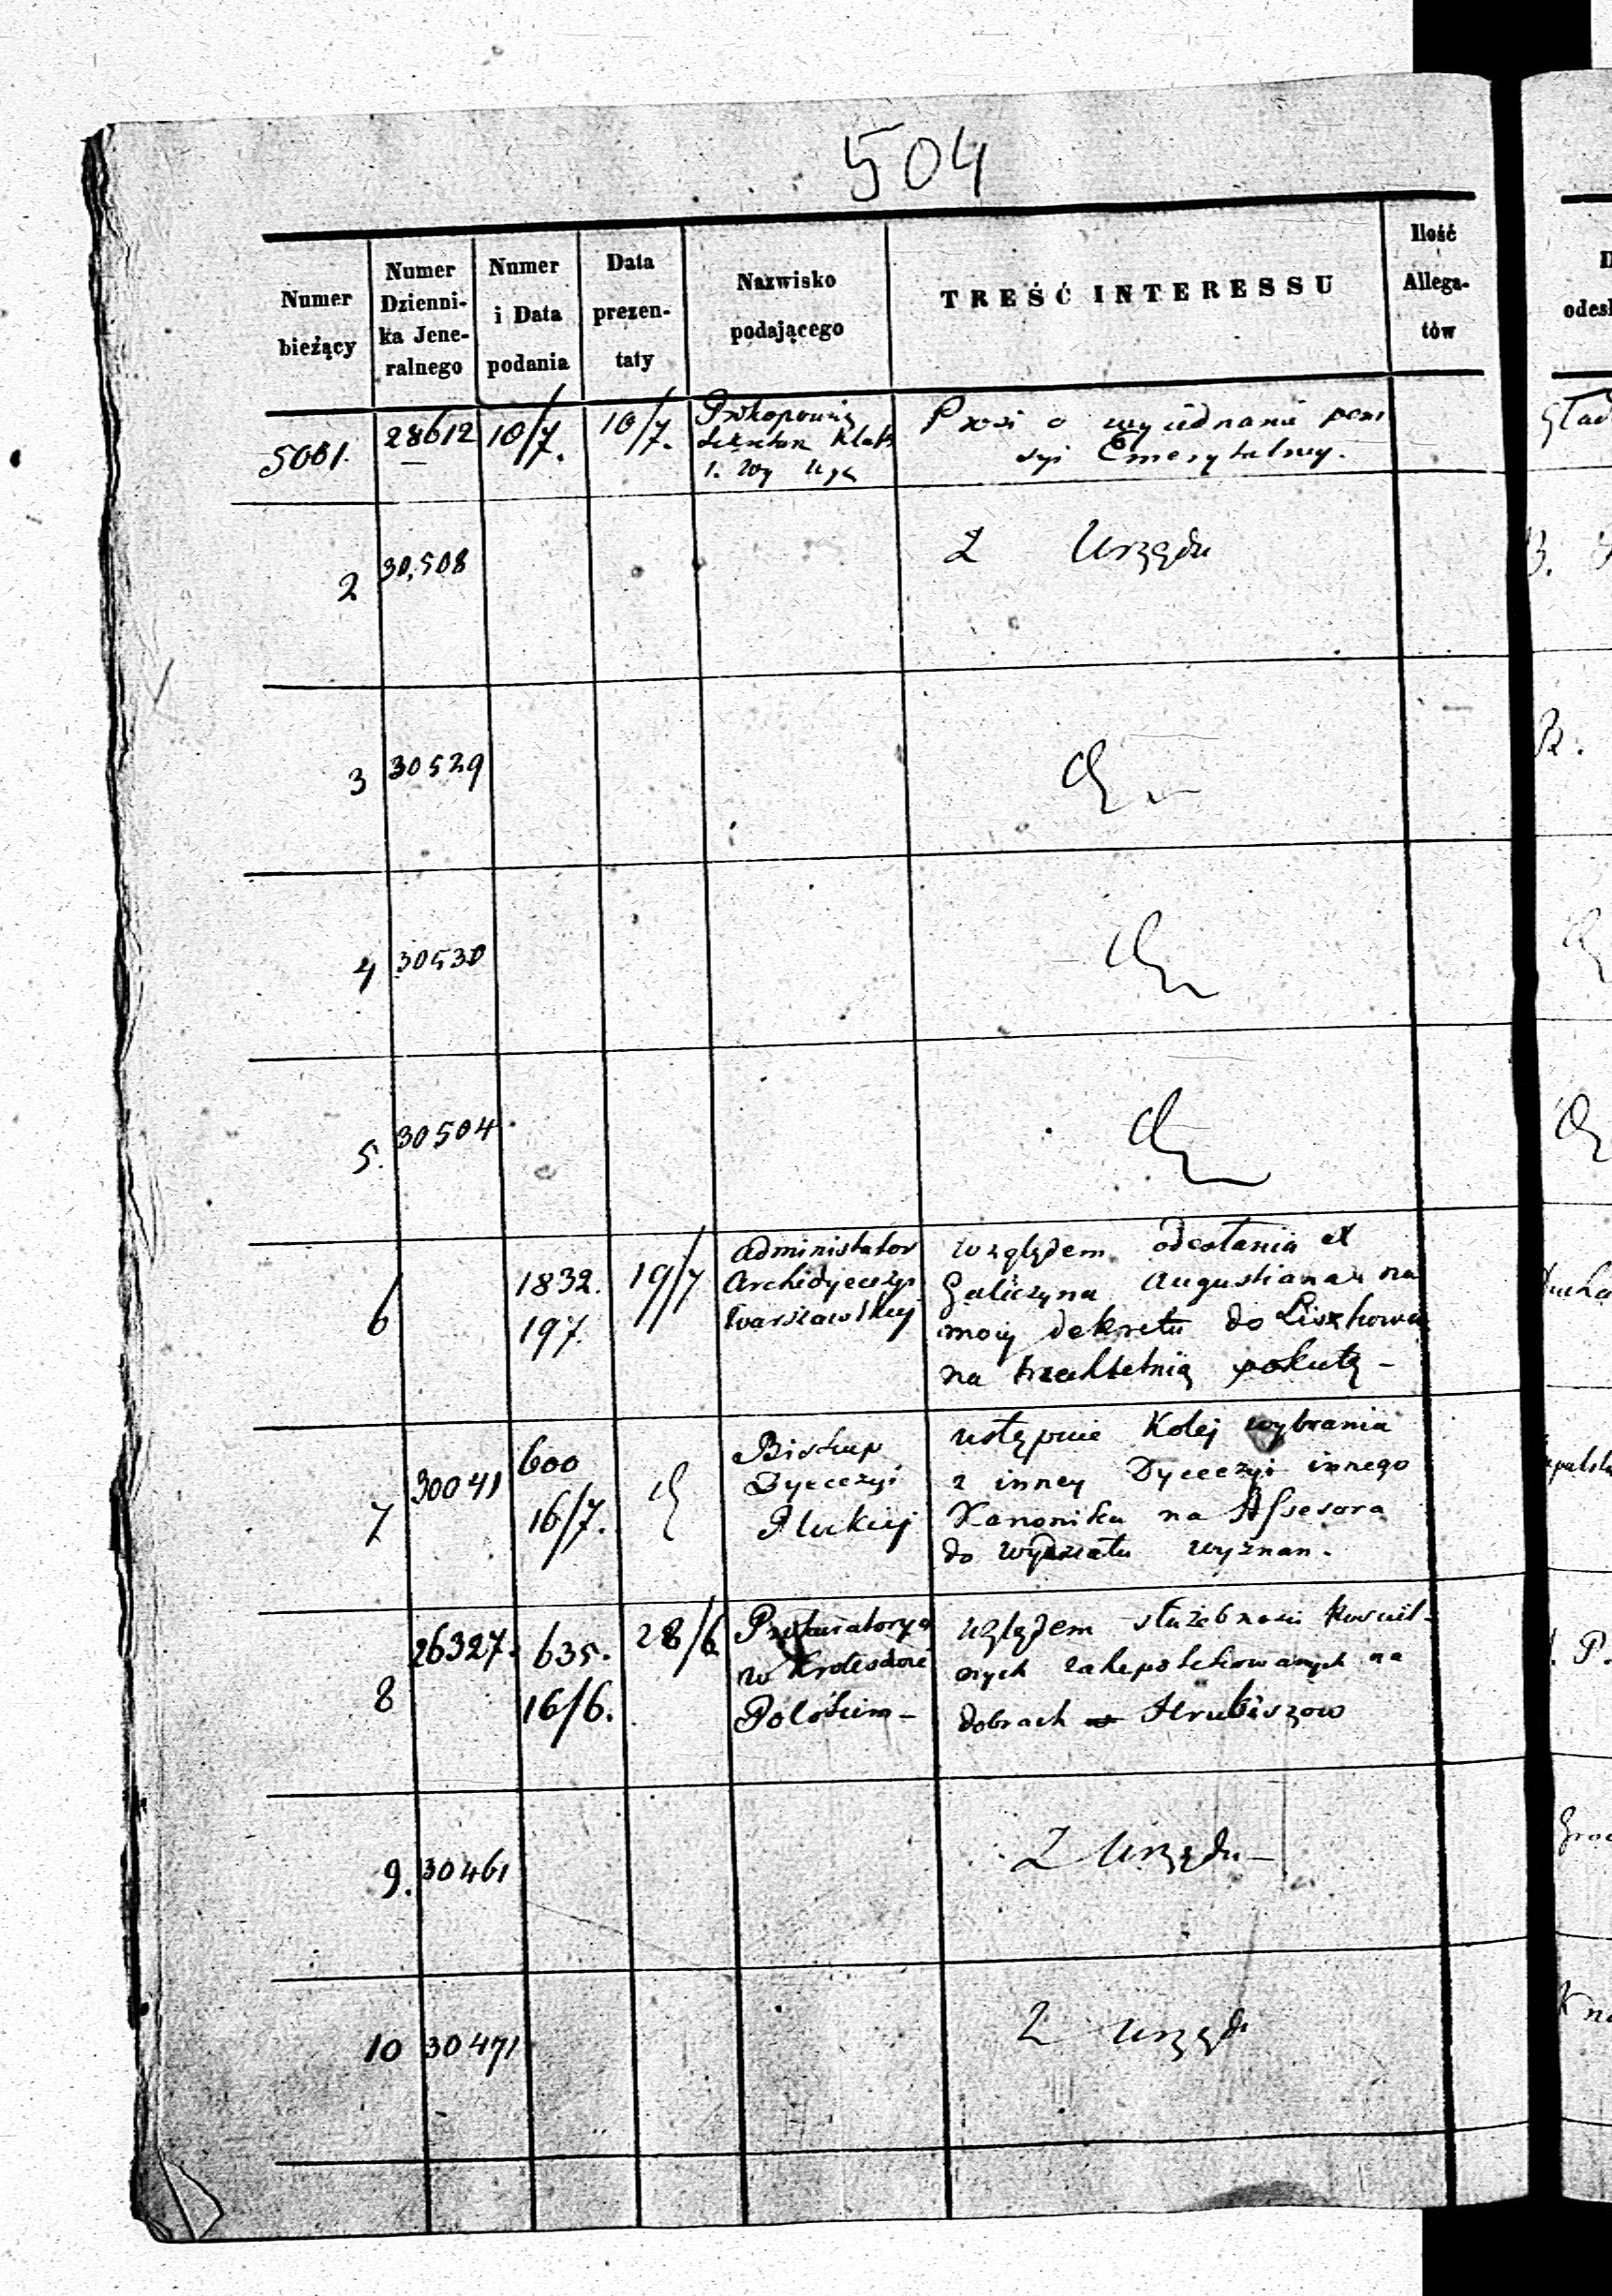 504
Numer
bieżący
Numer
Dzienni-
ka Jene-
ralnego
Numer
i Data
podania
Data
prezen-
taty
Nazwisko
podającego
TREŚĆ INTERESSU
Ilość
Allega-
tów
5001. 28612 10/7. 10/7.
Prosi o wyiednanie pen
syi Emerytalney.
2 30,508 Z Urzędu
3 30529
4 30530
5. 30504
6 1832. 197. 19/7
Administator
Archidyecezyi
Warszawskiej
względem odesłania
Galiczyna Augustiana na
mocy dekretu do Liszkowa
na trzechletnią pokutę -
7 30041 600 16/7.
Biskup
Dyecezyi
Płockiej
ustępuie Kolej wybrania
z inney Dyecezyi innego
Kanonika na Assesora
do wydziału wyznan.
8 26327. 635. 16/6. 28/6
Prokuratorya
w Krolestwie
Polskim -
względem służebnosci Kosciel-
nych zahypotekowanych na
dobrach Hrubiszow
9. 30461 Z Urzędu -
10 30471 Z Urzędu